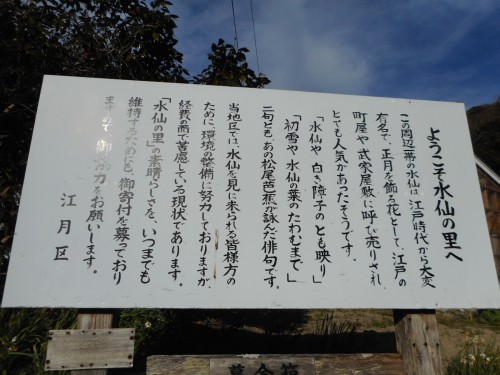 ようこそ水仙の里へ
この周辺一帯の水仙は、江戸時代から大変
有名で、正月を飾る花として、江戸の
町屋や武家屋敷に呼び売りされ
とても人気があったそうです。
「水仙や 白き障子の とも映り」
「初雪や 水仙の葉の たわむまで」
二句とも、あの松尾芭蕉が詠んだ俳句です。
当地区では、水仙を見に来られる皆様方の
ために、環境の整備に努力しておりますが、
経費の面で苦慮している現状であります。
「水仙の里」の素晴らしさを、いつまでも
維持するためにも、御寄付を募っており
ますので、御協力をお願いします。
江月区
募金箱